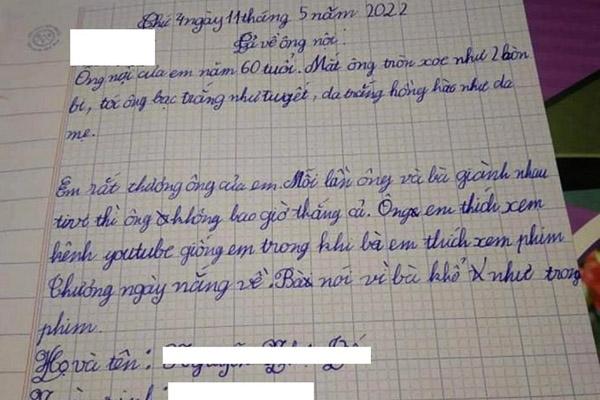 Thứ 4 ngày 11 tháng 5 năm 2022
Tả về ông nội.
Ông nội của em năm 60 tuổi. Mắt ông tròn xoe như 2 hòn
bi, tóc ông bạc trắng như tuyết, da trắng hồng hào như da
mẹ.
Em rất thương ông của em. Mỗi lần ông và bà giành nhau
tivi thì ông không bao giờ thắng cả. Ông em thích xem
kênh youtube giống em trong khi bà em thích xem phim
Thương ngày nắng về. Bà nói vì bà khổ như trong
phim.
Họ và tên: